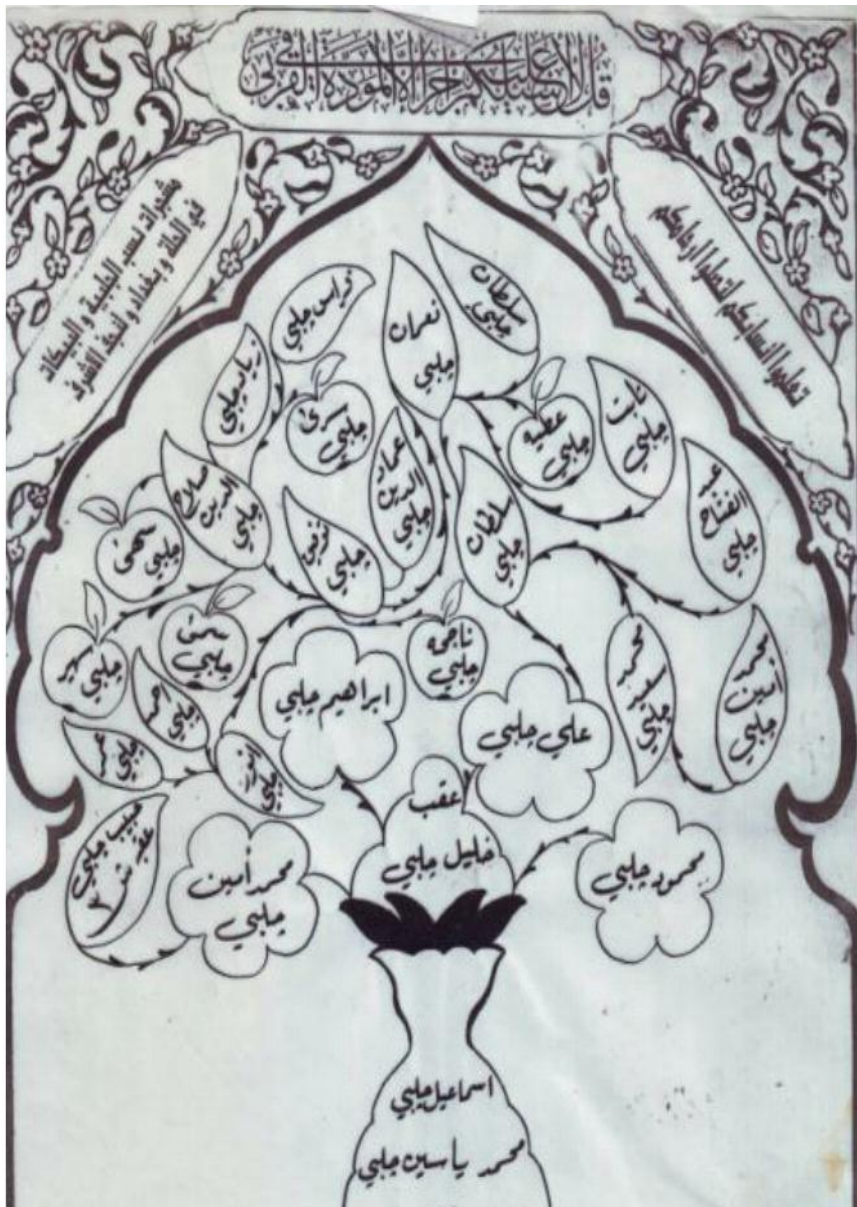 قل لا اسئلكم عليه اجرا الا المودة في القربى
تعلموا انسابكم لتصلوا ارحامكم
مشجرات نسب الجلبية والبيكات
في الحلة وبغداد والنجف الاشرف
سلطان
جلبي
نعمان
جلبي
فراس جلبي
زياد جلبي
جلبي
عطيه
جلبي
ثابت
جلبي
عبد
الفتاح
جلبي
عماد
الدين
جلبي
صلاح
الدين
جلبي
جلبي
سلطان
جلبي
جلبي
جلبي
جلبي
ناجحه
جلبي
محمد
جلبي
محمد
أمين
جلبي
ابراهيم جلبي
علي جلبي
جلبي
جلبي
جلبي
عقب
خليل جلبي
حبيب جلبي
محمد أمين
جلبي
محمود جلبي
اسماعيل جلبي
محمد ياسين جلبي